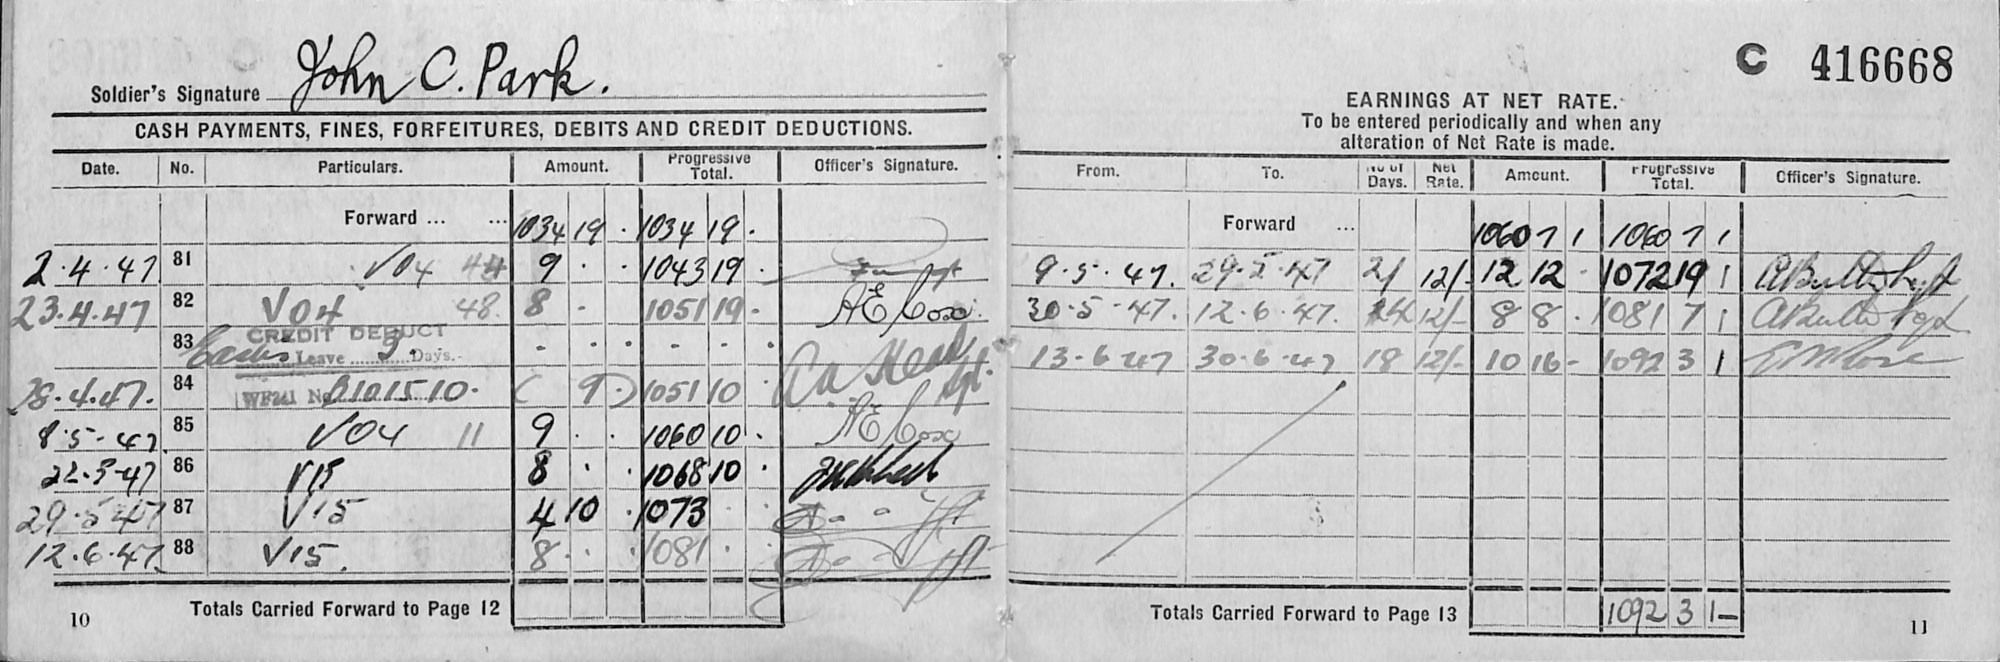 Soldier's Signature John C. Park.
CASH PAYMENTS, FINES, FORFEITURES, DEBITS AND CREDIT DEDUCTIONS.
Date. No. Particulars. Amount. Progressive Total. Officer's Signature.
Forward ... ... 1034 19 . 1034 19 .
2.4.47 81 V04 44 9 . . 1043 19 .
23.4.47 82 V04 48. 8 - 1051 19 - A E Cox.
83 CREDIT DEDUCT
Leave 3 Days.
28.4.47. 84 WF241 No. B101510. ( 9.) 1051 10
8.5.47 85 V04 11 9 . . 1060 10 . A E Cox
22.5.47 86 V15 8 . . 1068 10 .
29.5.47 87 V15 4 10 . 1073
12.6.47. 88 V15. 8 . . 1081 .
Totals Carried Forward to Page 12
10
C 416668
EARNINGS AT NET RATE.
To be entered periodically and when any
alteration of Net Rate is made.
From. To. No of Days. Net Rate. Amount. Progressive Total. Officer's Signature.
Forward ... 1060 7 1 1060 7 1
9.5.47. 29.5.47 21 12/- 12 12 - 1072 19 1
30.5.47. 12.6.47. 14 12/- 8 8 . 1081 7 1
13-6-47 30.6.47 18 12/- 10 16 - 1092 3 1
Totals Carried Forward to Page 13 1092 3 1-
11